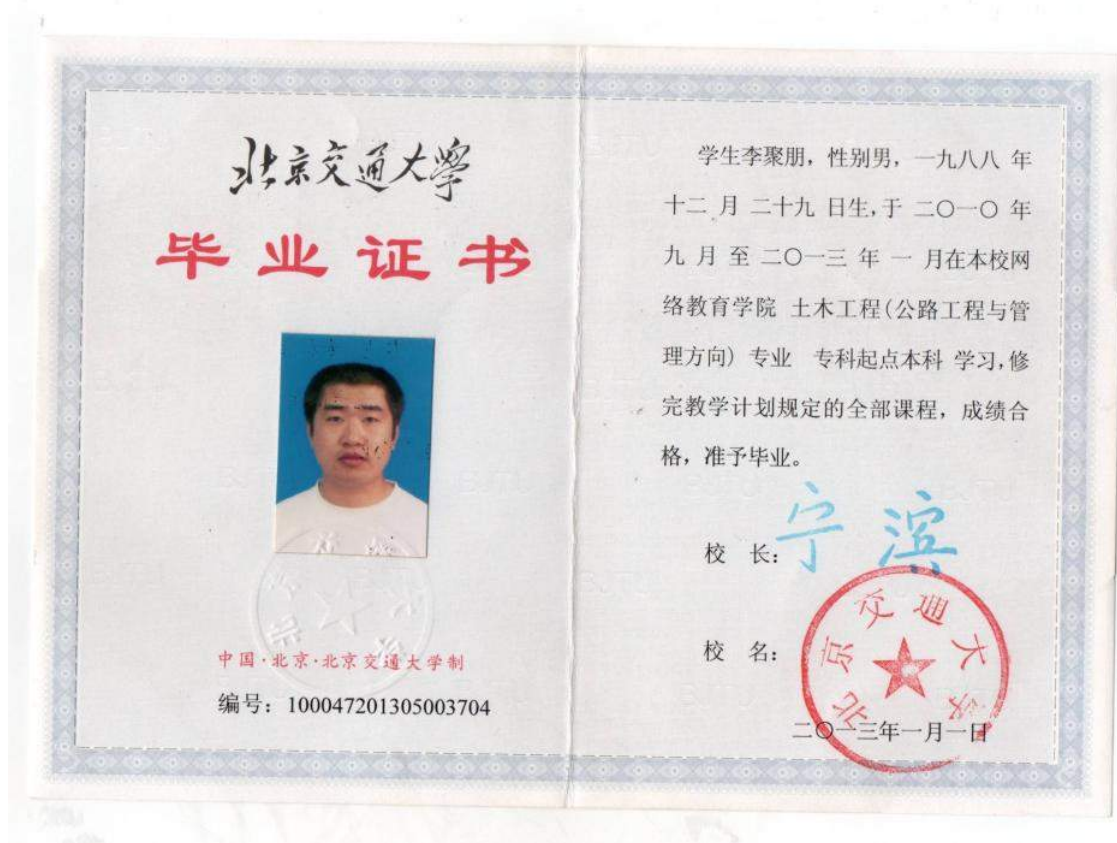 北京交通大學
毕业证书
中国·北京·北京交通大学制
编号：100047201305003704
学生李聚朋，性别男，一九八八 年
十二 月 二十九 日生，于 二〇一〇 年
九 月 至 二〇一三 年 一 月在本校网
络教育学院 土木工程(公路工程与管
理方向) 专业 专科起点本科 学习，修
完教学计划规定的全部课程，成绩合
格，准予毕业。
校 长：宁滨
校 名：
北京交通大学
二〇一三年一月一日